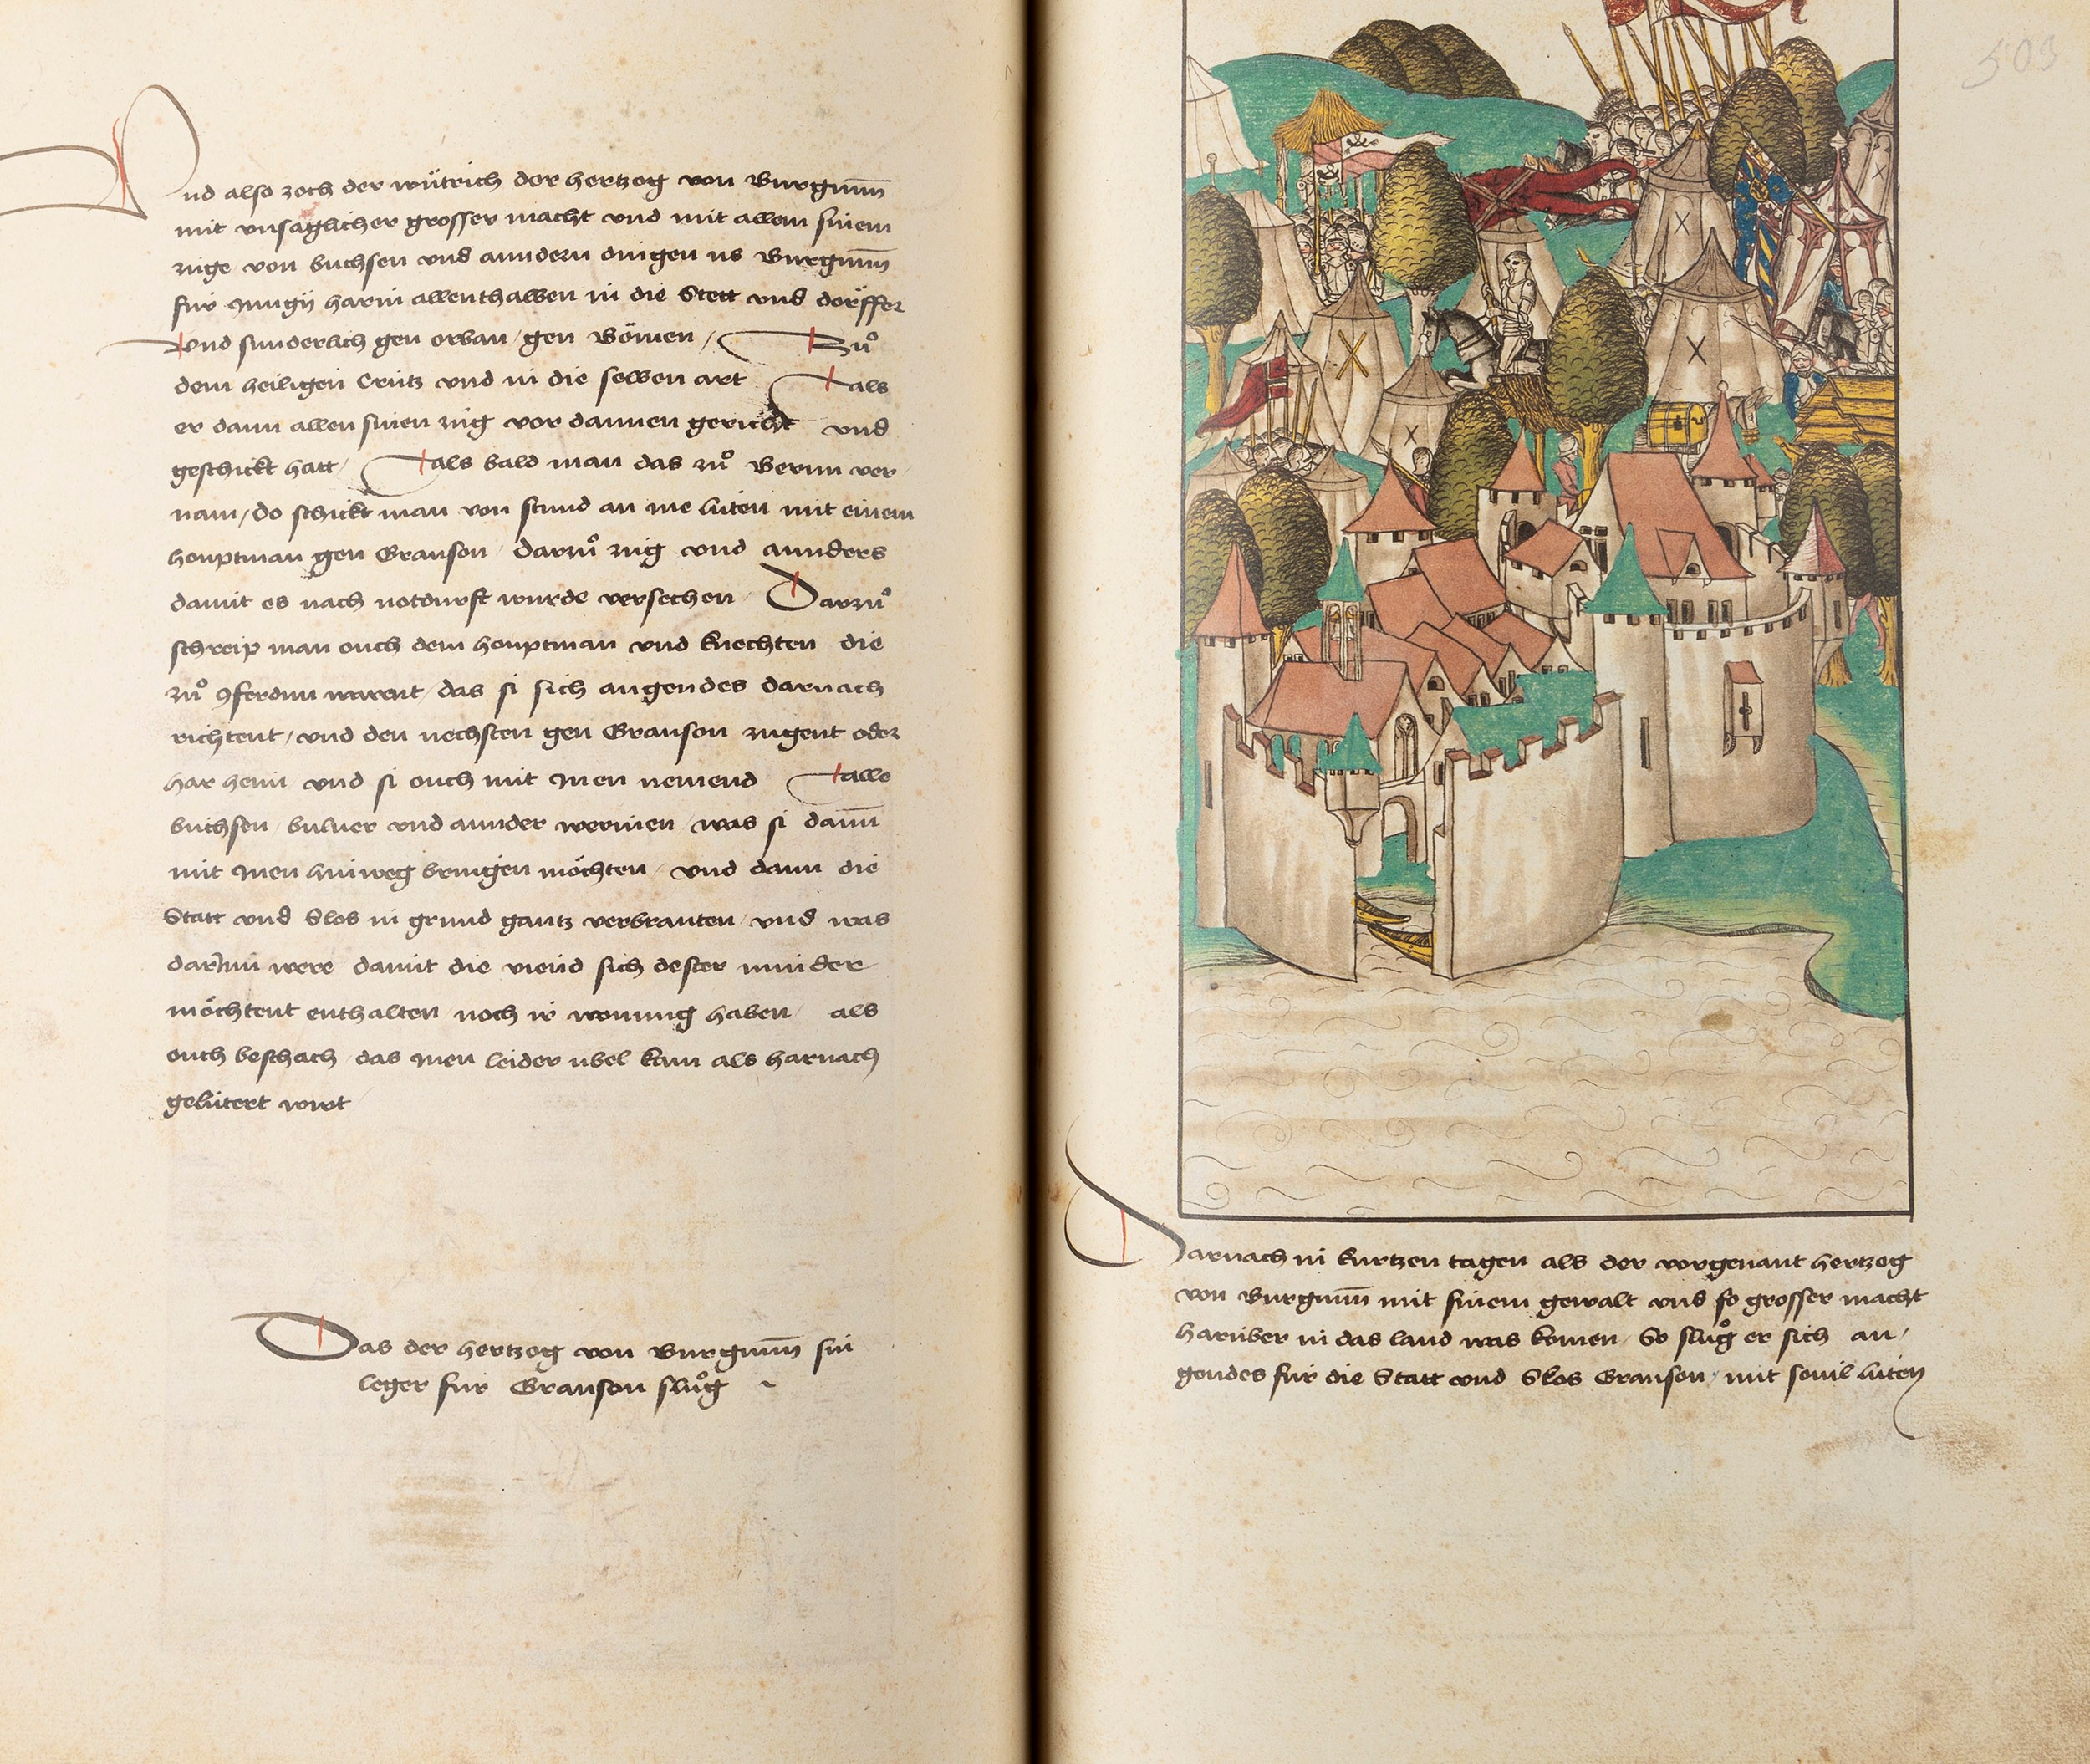 Und also zoch der wütrich der hertzog von Burgunn̄
mit unsaglicher grosser macht und mit allem sinem
zuge von buchsen und anndern dingen us Burgunn̄
für Jungy harin allenthalben in die Stett und dörffer
und sunderlich gen orban / gen Bömen / Zuͦ
dem heiligen Crütz und in die selben art als
er dann allen sinen zug vor dannen gericht und
geschickt hatt / als bald man das zuͦ Bernn ver /
nam / do schickt man von stund an me lüten mit einem
houptman gen Granson / darzuͦ züg und annders
damit es nach notdurft wurde versechen / Darzuͦ
schreip man ouch dem houptman und knechten die
zuͦ yferdnn warent / das si sich angendes darnach
richtent / und den nechsten gen Granson zugent oder
har heim und si ouch mit Inen nemend alle
buchsen / buluer und annder werinen / was si dann̄
mit Inen hinweg bringen möchten / und dann die
Statt und Slos in grund gantz verbranten / und was
darInn were damit die viend sich dester minder
möchtent enthalten noch ir wonung haben / als
ouch beschach / das Inen leider übel kam als harnach
gelütert wirt /
Das der hertzog von Burgunn̄ sin
leger für Granson sluͦg ~
503
Darnach in kurtzen tagen als der vorgenant hertzog
von Burgunn̄ mit sinem gewalt und so grosser macht
harüber in das land was komen / So sluͦg er sich an /
gendes für die Statt und Slos Granson / mit sovil lüten